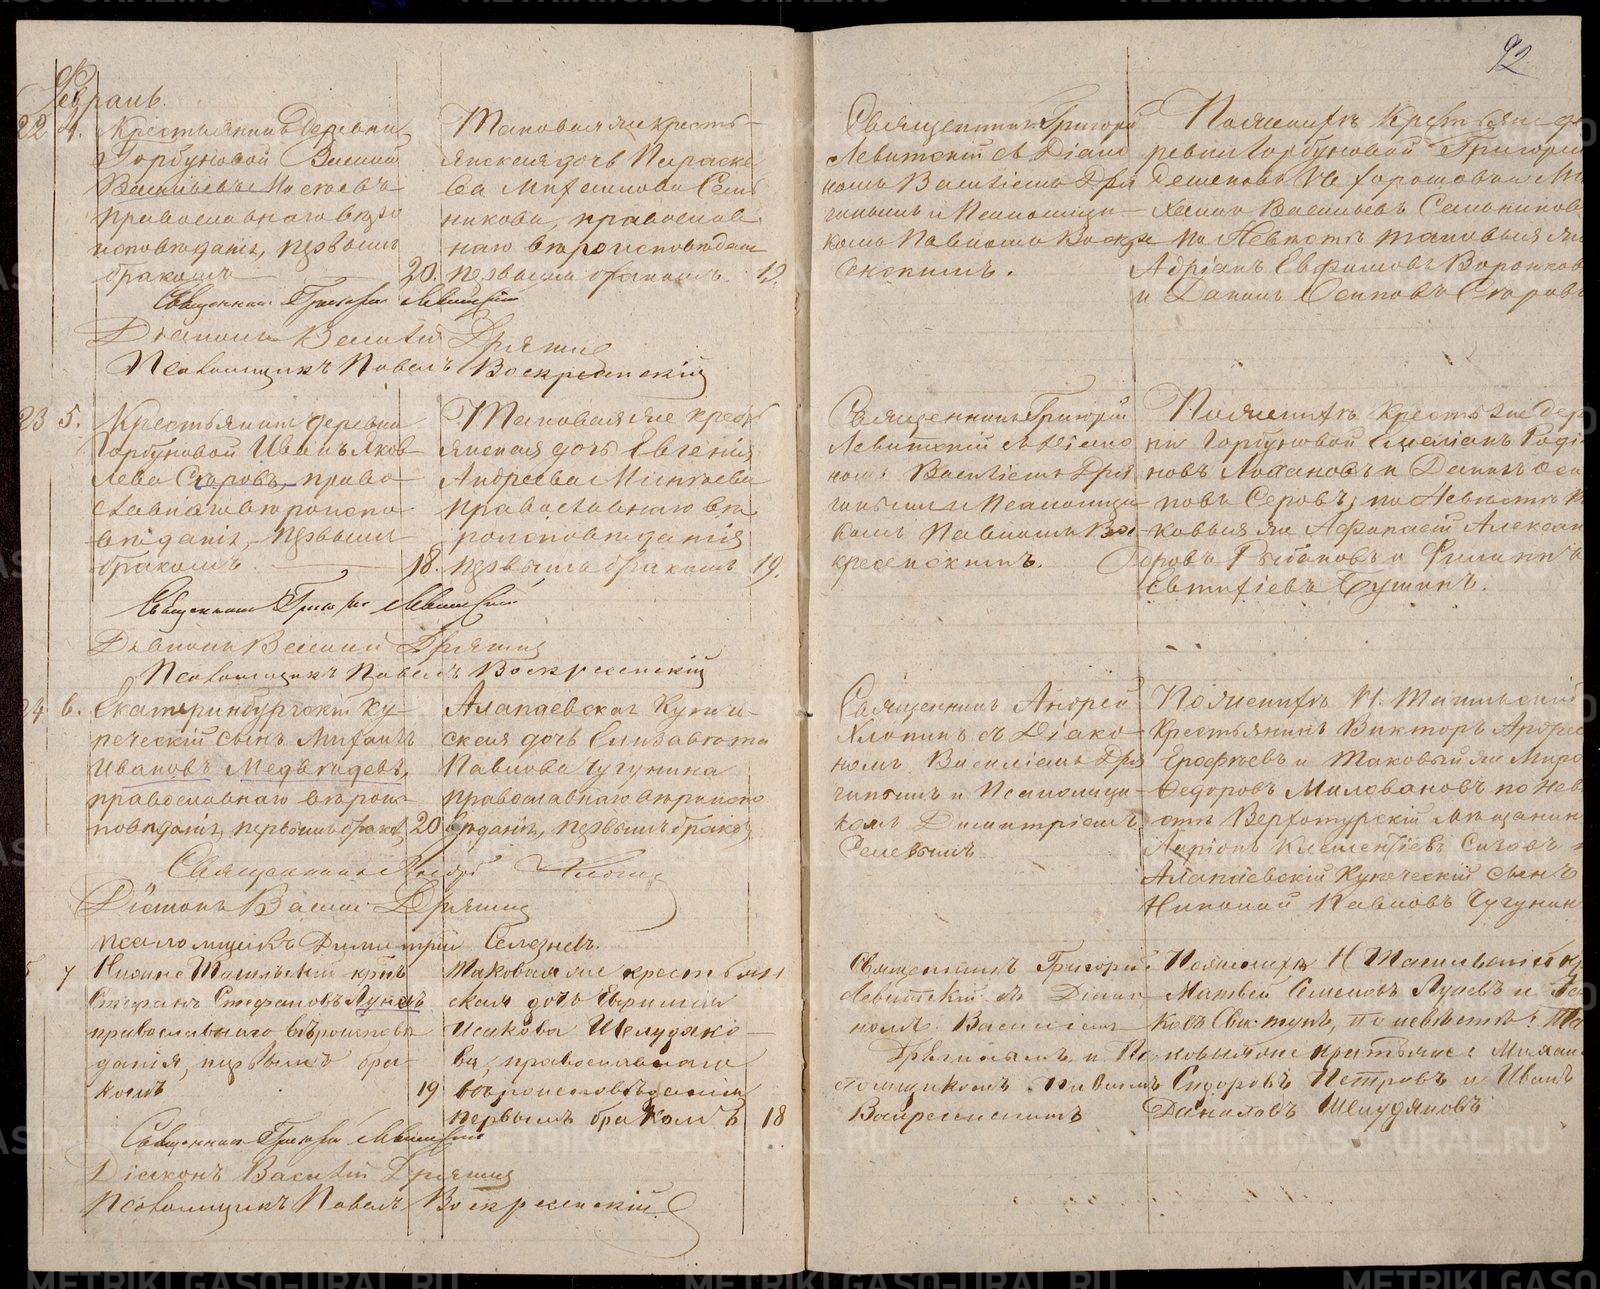 Февраль.
22 4. Крестьянинъ деревни
Горбуновой Василий
Васильевъ
православнаго вѣро
исповѣданія, первымъ
бракомъ 20.
Таковая же кресть-
янская дочь Параске
ва Михаилова Сель
никова, православ
наго вѣроисповѣдан
первымъ бракомъ. 19.
Священникъ Григорій Левитскій
Діаконъ Василій Дрягинъ
Псаломщикъ Павелъ Воскресенскій
23 5. Крестьянинъ деревни
Горбуновой Иванъ Яков
левъ Сѣровъ, право
славнаго вѣроиспо
вѣданія, первымъ
бракомъ 18.
Таковая же кресть
янская дочь Евгенія
Андреева
православнаго вѣ
роисповѣданія
первымъ бракомъ 19.
Священникъ Григорій Левитскій
Діаконъ Василий Дрягинъ
Псаломщикъ Павелъ Воскресенскій
24 6. Екатеринбургскій ку-
печескій сынъ Михаилъ
Ивановъ Медвѣдевъ,
православнаго вѣроис
повѣданія, первымъ браком, 20
Алапаевская Купече-
ская дочь Елизавета
Павлова Чугунина
православнаго вѣроиспо
вѣданія, первымъ браком,
Священникъ Андрей Хлопинъ
Діаконъ Василій Дрягинъ
псаломщикъ Димитрій Селезневъ.
7 Нижне Тагильскій крнъ
Стефанъ Стефановъ Луневъ
православнаго вѣроисповѣ
данія, первымъ бра
комъ 19
Таковая же крестьян
ская дочь
Исакова Шелудяко-
ва, православнаго
вѣроисповѣданія
первымъ бракомъ 18
Священникъ Григорій Левитскій
Діаконъ Василій Дрягинъ
Псаломщикъ Павелъ Воскресенскій
92
Священникъ Григорій
Левитскій съ Діако
номъ Василіемъ Дря
гинымъ и Псаломщи-
комъ Павломъ Воскре
сенскимъ.
По женихѣ Крестьяне де
ревни Горбуновой Григорій
Семеновъ Ми
хаилъ Васильевъ Сельников
по невѣстѣ таковыя же
Адріанъ Евфимовъ Воронков
и Данилъ Осиповъ Сѣровъ
Священникъ Григорій
Левитскій съ Діако
номъ Василіемъ Дря
гинымъ и Псаломщи
комъ Павломъ Вос-
кресенскимъ.
По женихѣ Крестьяне дер
ни Горбуновой Емеліанъ Роді
новъ и Данилъ Оси
повъ Серовъ, по невѣстѣ т
ковыя же Афанасій Алексан
дровъ Рыбаковъ и Филиппъ
Евтифіевъ Бушинъ.
Священникъ Андрей
Хлопинъ съ Діако-
номъ Василіемъ Дря
гинымъ и Псаломщи-
комъ Димитріемъ
Селезневымъ
По женихѣ Н. Тагильскій
Крестьянинъ Викторъ Андре
Ерофѣевъ и Таковый же Миро
Федоровъ Миловановъ по нев
стѣ Верхотурскій мѣщанин
Ларіонъ Клементіевъ
Алапаевскій Купеческій сынъ
Николай Павловъ Чугунин
Священникъ Григорій
Левитскій съ Діако
номъ Василіем
Дрягинымъ и Пса
ломщикомъ Павломъ
Воскресенскимъ
По женихѣ Н Тагильскій
Матвей Семеновъ Луневъ и
по невѣстѣ: Та
ковыеже крестьяне: Михаи
Сидоровъ Петровъ и Иванъ
Даниловъ Шелудяковъ
METRIKI.GASO-URAL.RU